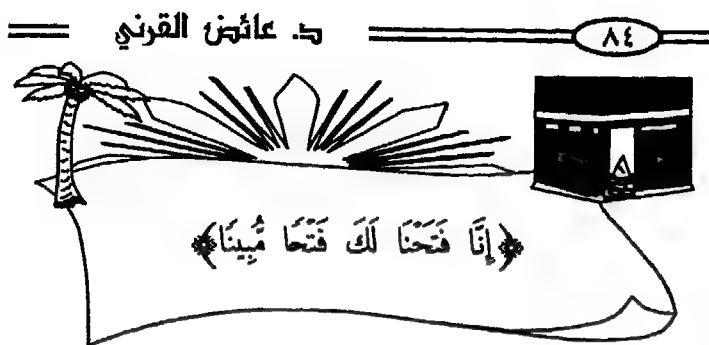 د. عائض القرني ٨٤
﴿إِنَّا فَتَحْنَا لَكَ فَتْحًا مُّبِينًا﴾